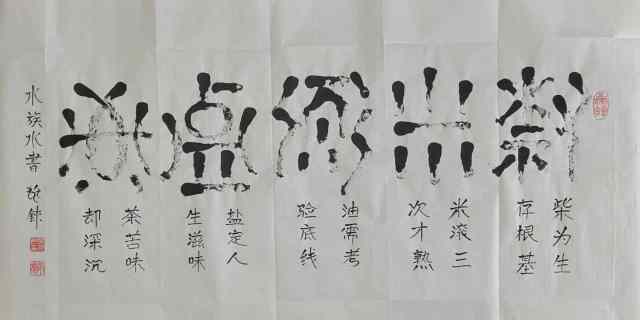 柴为生
存根基
米滚三
次才熟
油需考
验底线
盐定人
生滋味
茶苦味
却深沉
水族水书